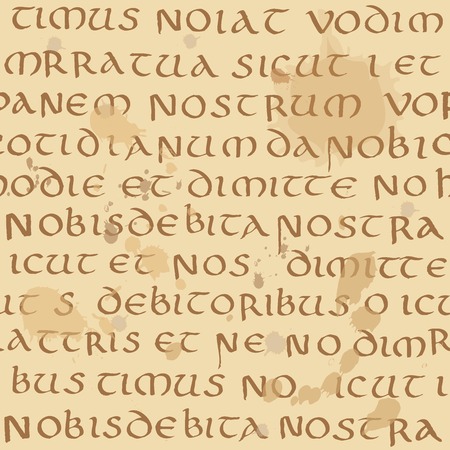 TIMUS NOIAT VODIM
MRRATUA SICUT I ET
PANEM NOSTRUM VOR
COTIDIANUM DA NOBIC
HODIE ET DIMITTE NO H
NOBIS DEBITA NOSTRA
ICUT ET NOS DIMITTE
UT S DEBITORIBUS O ICU
RATTRIS ET NE NO DIMR
BUS TIMUS NO ICUT I
NOBIS DEBITA NOSTRA